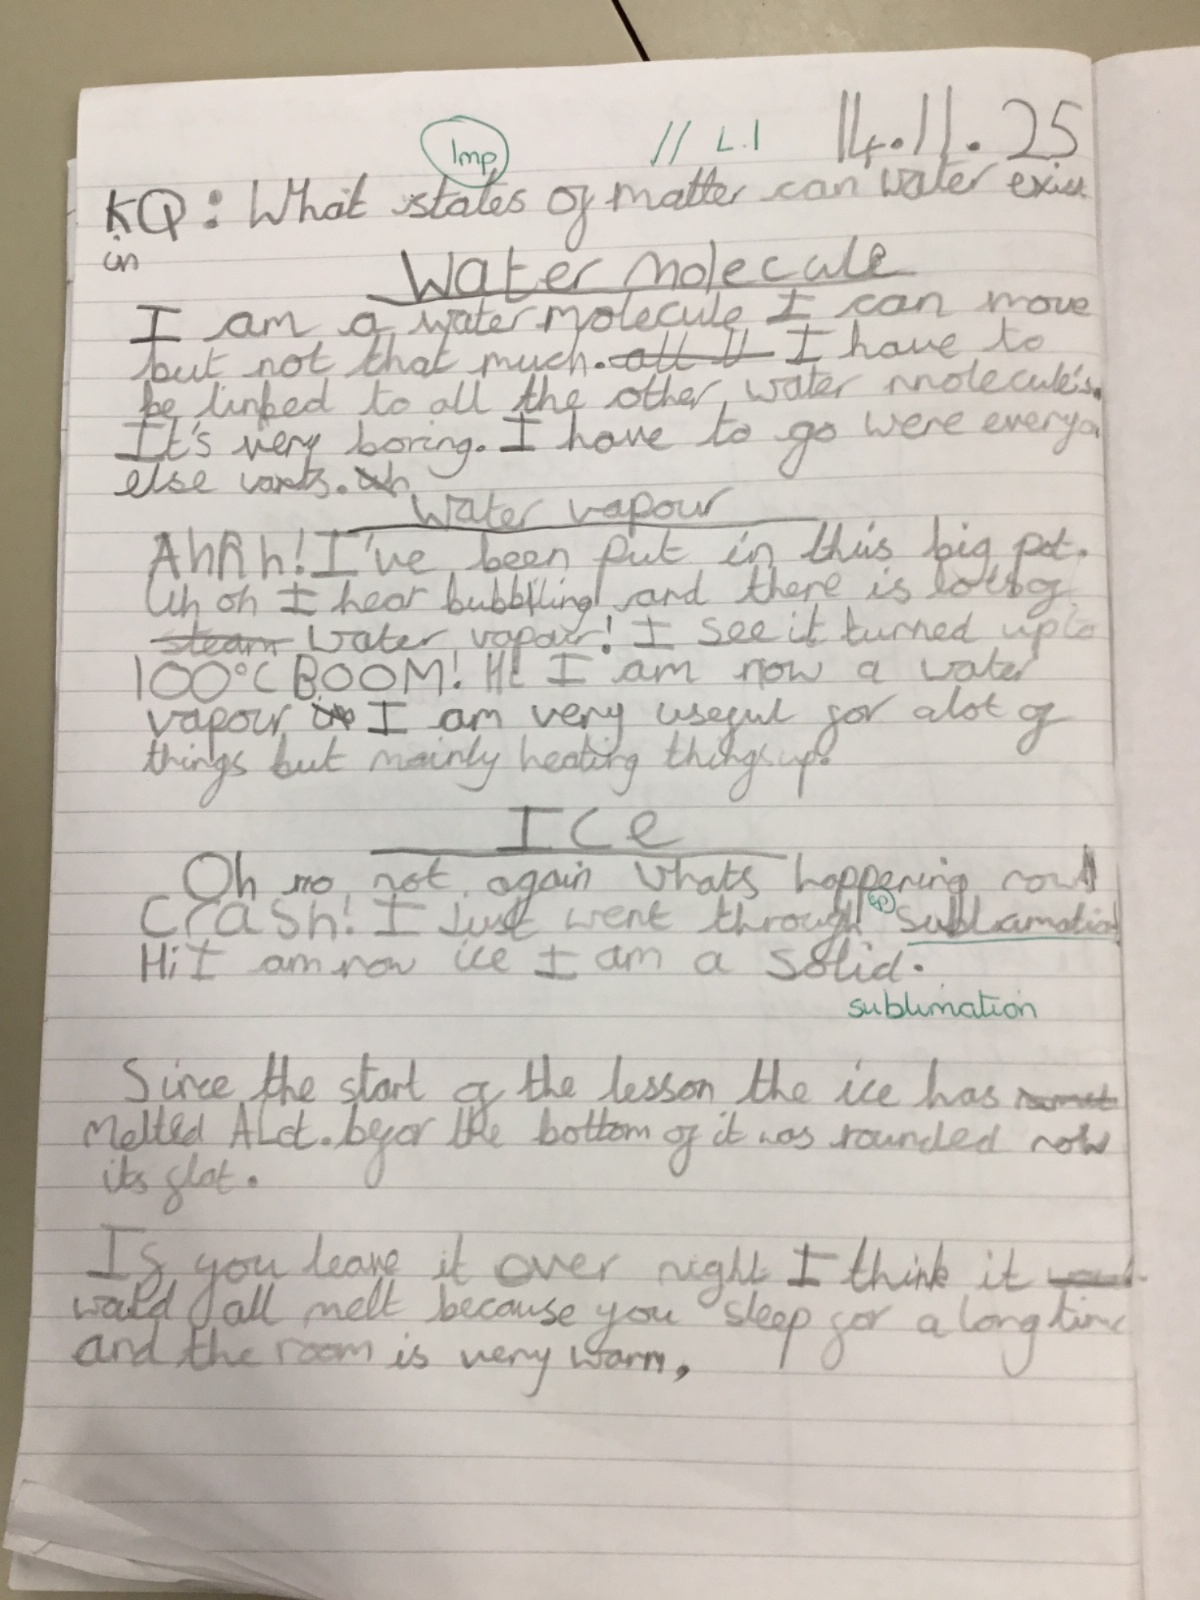 Imp // L.I 14.11.25
KQ: What states of matter can water exist
in
Water molecule
I am a water molecule I can move
but not that much. I have to
be linked to all the other water molecule's.
It's very boring. I have to go were everyo
else wants.
Water vapour
Ahhh! I've been put in this big pot.
Uh oh I hear bubbling and there is lots of
steam water vapour! I see it turned up to
100°C BOOM! Hi I am now a water
vapour I am very useful for alot of
things but mainly heating things up.
ICe
Oh no not again whats happening now
Crash! I Just went through sp sublamation
Hi I am now ice I am a solid.
sublimation
Since the start of the lesson the ice has
melted ALot. befor the bottom of it was rounded now
its flat.
If you leave it over night I think it
would all melt because you sleep for a long time
and the room is very warm,